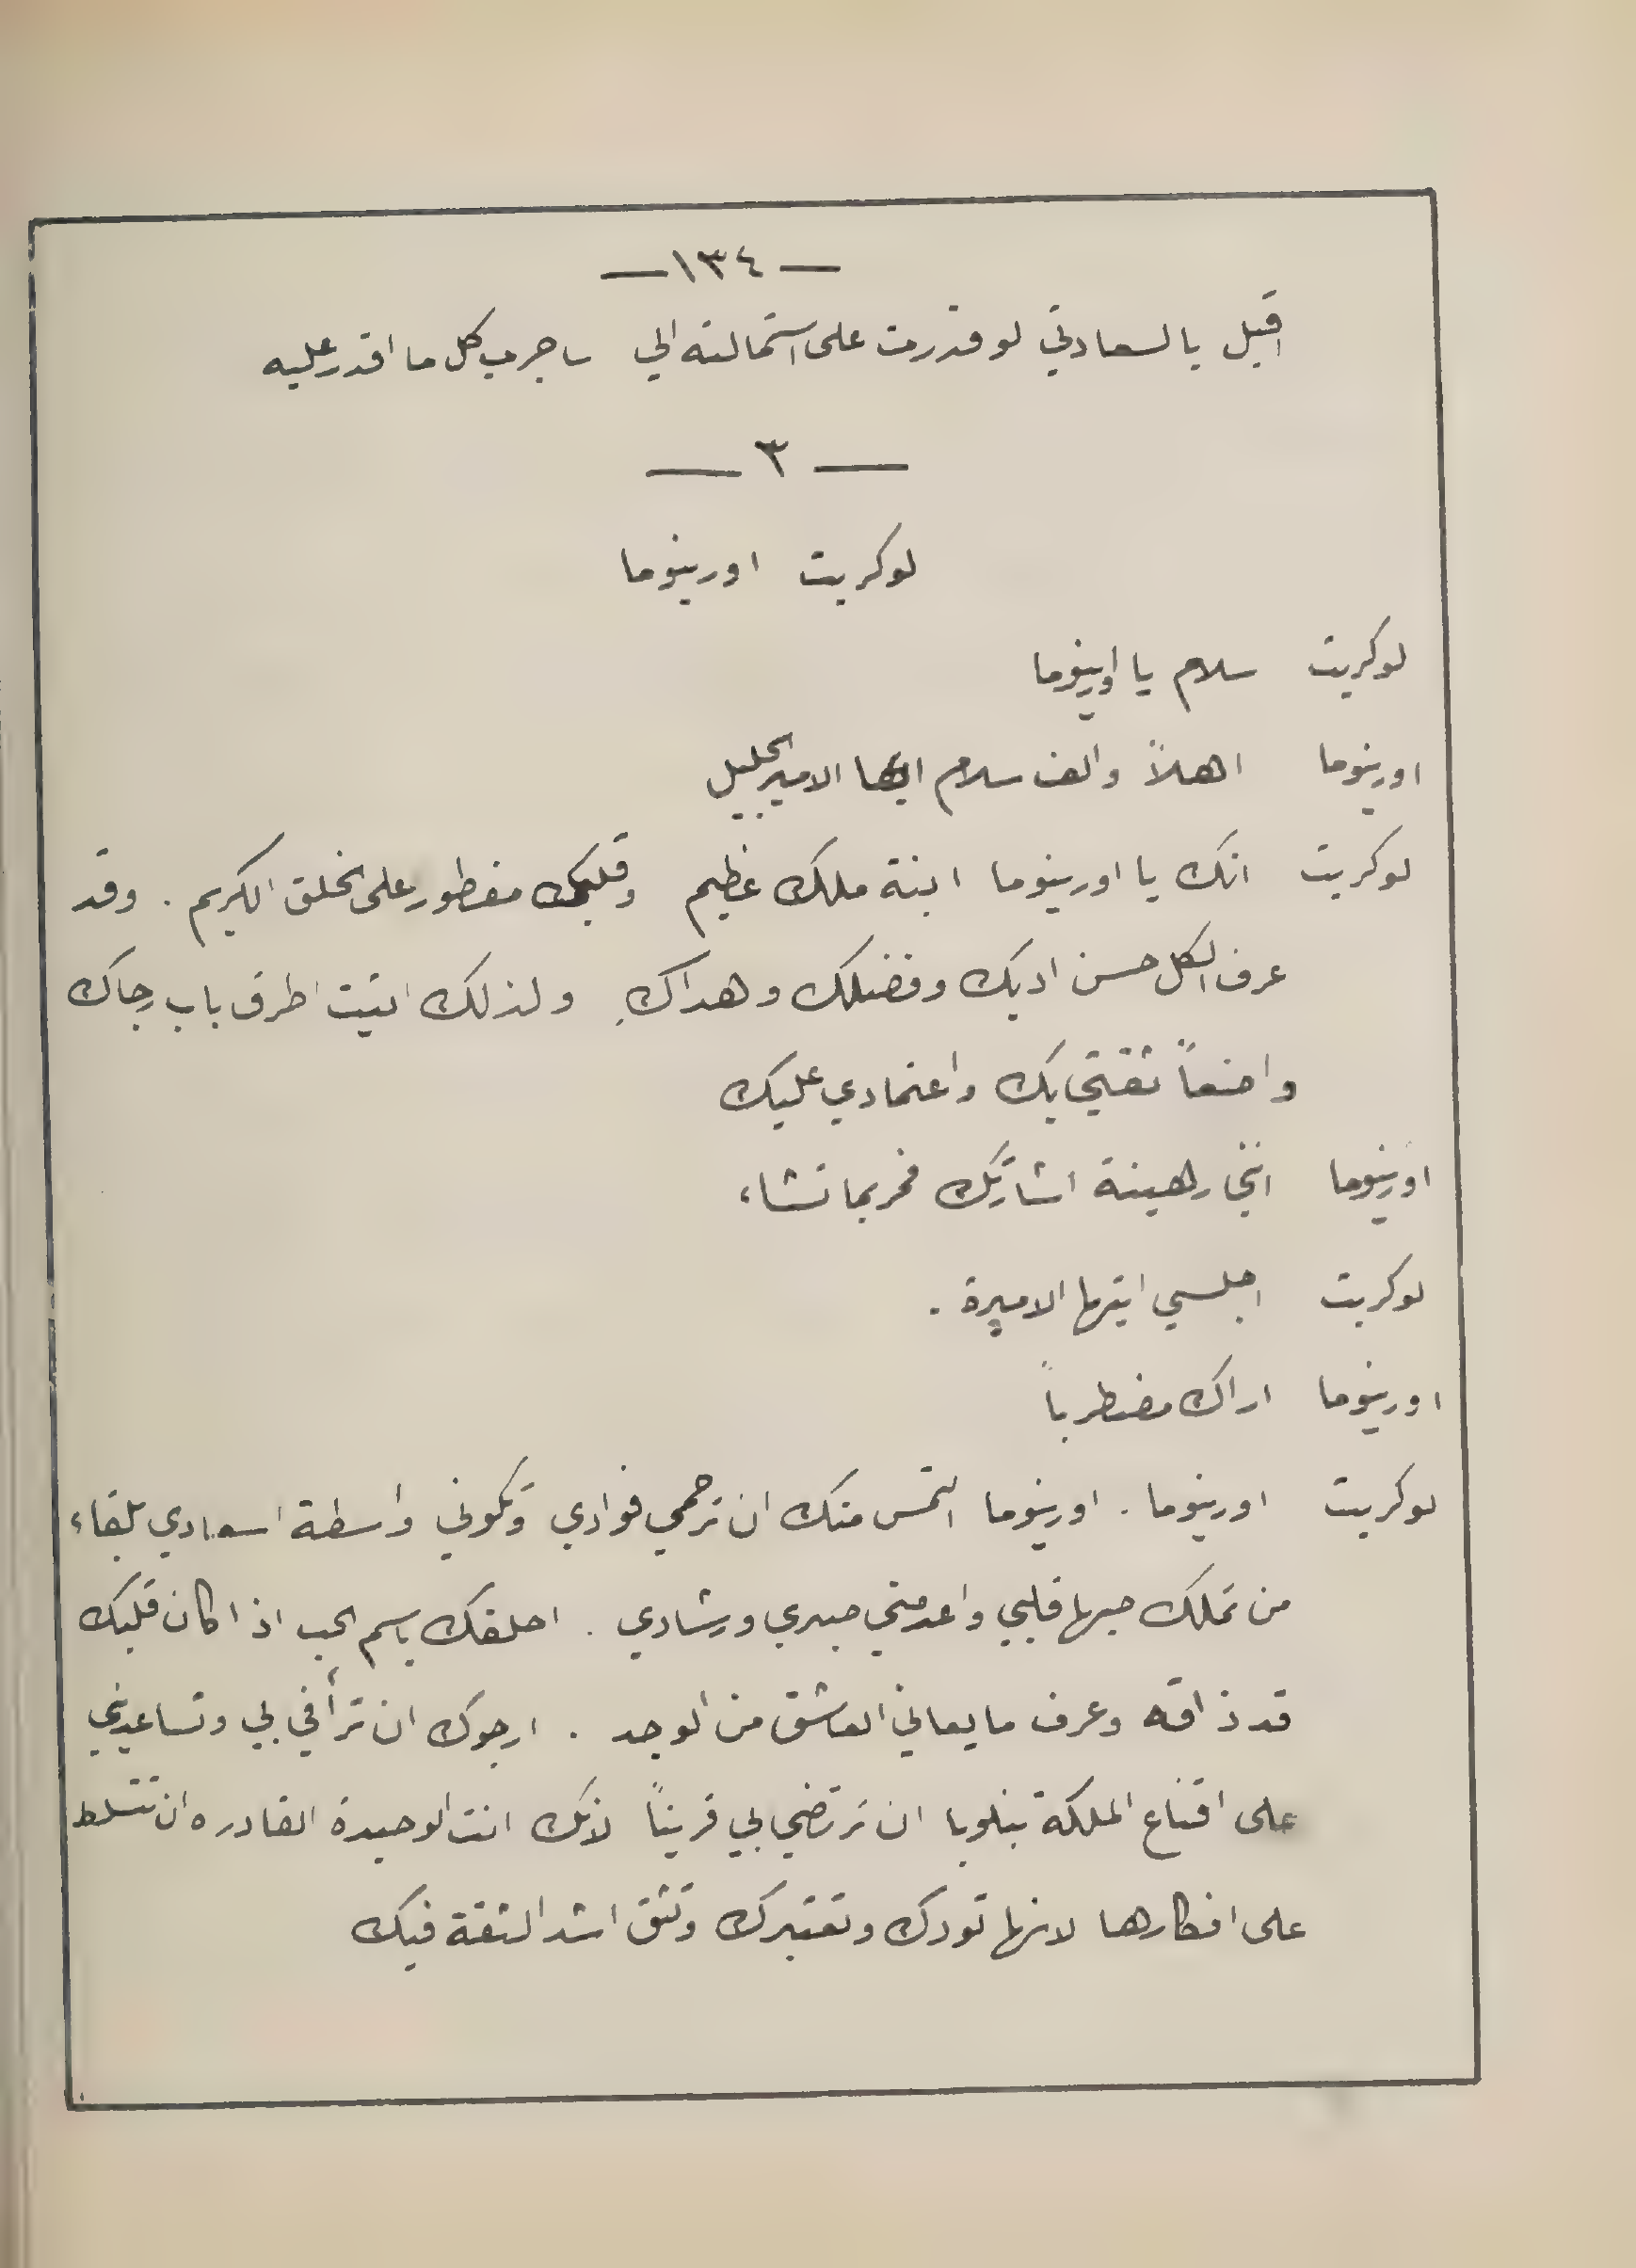 — ١٣٤ —
اقبل يا لسعادتي لو قدرت على استمالته الي ساجرب كل ما اقدر عليه
— ٣ —
لوكريت اورينوما
لوكريت سلام يا اورينوما
اورينوما اهلاً والف سلام ايها الامير الجليل
لوكريت انك يا اورينوما ابنة ملك عظيم وقلبك مفطور على الخلق الكريم . وقد
عرف الكل حسن ادبك وفضلك وهداك ولذلك اتيت اطرق باب رجاك
واضعاً ثقتي بك واعتمادي عليك
اورينوما انني رهينة اشارتك فمر بما تشاء
لوكريت اجلسي ايتها الاميرة .
اورينوما اراك مضطرباً
لوكريت اورينوما . اورينوما التمس منك ان ترحمي فوادي وتكوني واسطة اسعادي بلقاء
من تملك حبها قلبي واعدمتني صبري ورشادي . احلفك باسم الحب اذا كان قلبك
قد ذاقه وعرف ما يعاني العاشق من الوجد . ارجوك ان ترأفي بي وتساعديني
على اقناع الملكة بنلوبا ان ترتضي بي قريناً لانك انت الوحيدة القادره ان تتسلط
على افكارها لانها تودك وتعتبرك وتثق اشد الثقة فيك